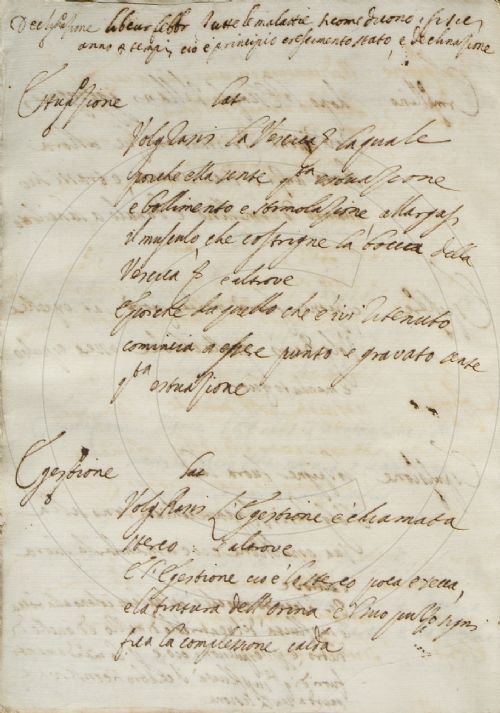 Declinazione libr tutte le malattie, si come dicono,
anno 4 tempi, cio è principio crescimento stato, e declinazione
Estuazione lat
Volg Rasis la Vescica laquale
perche ella sente qta estuazione
e bollimento e stimolazione allargasi
il musculo che costrigne la bocca della
Vescica e altrove
e perche da quello che è ivi ritenuto
comincia a essere punto e gravato sente
qta estuazione
Egestione lat
Volg Rasis L'Egestione è chiamata
stereo e altrove
E l'Egestione cio è lo stereo poca e secca,
e la tintura dell'orina e'l suo puzzo signi
fica la complessione calda